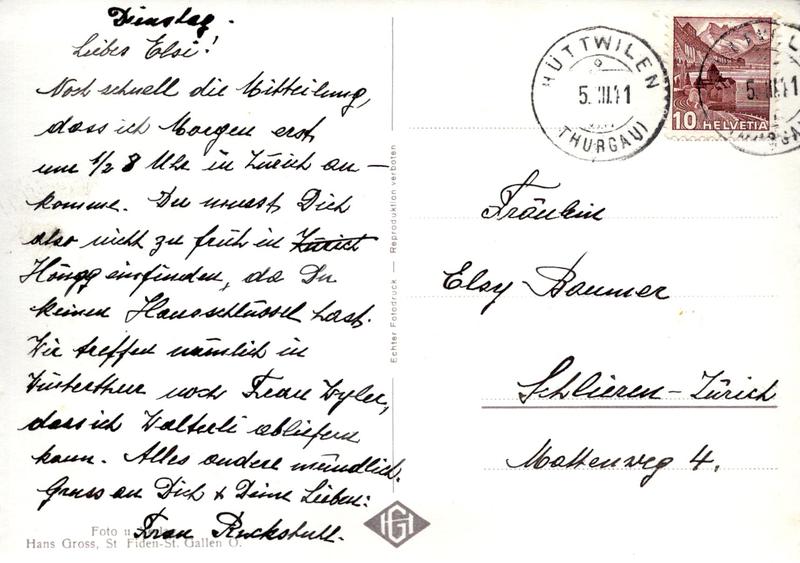 Dienstag.
Liebes Elsi!
Noch schnell die Mitteilung,
dass ich Morgen erst
um 1/2 8 Uhr in Zürich an-
komme. Du musst Dich
also nicht zu früh in Zürich
Höngg einfinden, da Du
keinen Hausschlüssel hast.
Wir treffen nämlich in
Winterthur noch Frau Wyler,
dass ich Walterli abliefern
kann. Alles andere mündlich.
Gruss an Dich & Deine Lieben:
Frau Ruckstuhl.
Foto u.
Hans Gross, St Fiden-St. Gallen O.
Echter Fotodruck — Reproduktion verboten
HG
HÜTTWILEN
5.III.41
(THURGAU)
10 HELVETIA
5.III.41
Fräulein
Elsy Baumer
Schlieren-Zürich
Mattenweg 4.